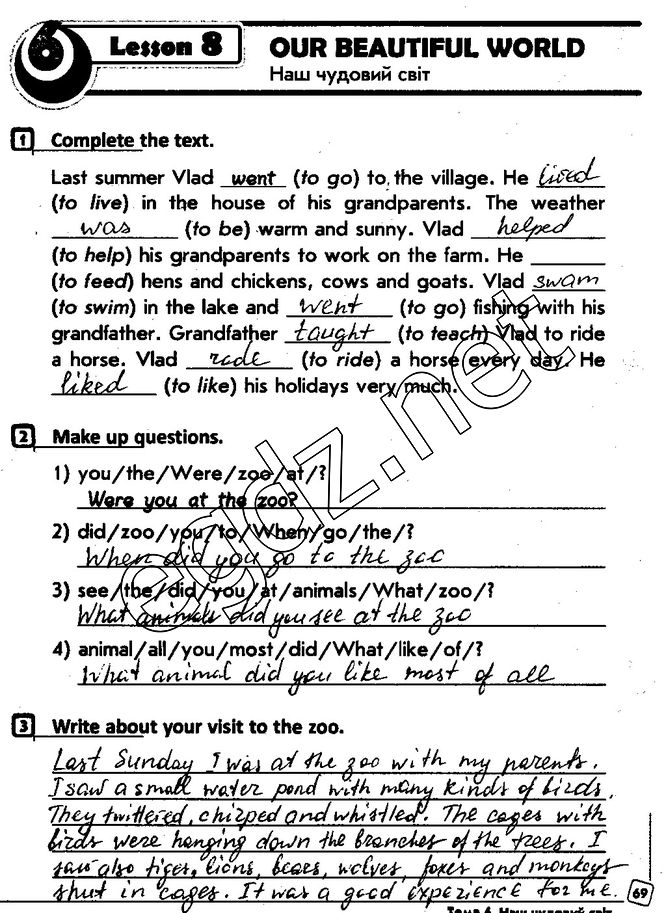 6 Lesson 8 OUR BEAUTIFUL WORLD
Наш чудовий світ
1 Complete the text.
Last summer Vlad went (to go) to the village. He lived
(to live) in the house of his grandparents. The weather
was (to be) warm and sunny. Vlad helped
(to help) his grandparents to work on the farm. He ______
(to feed) hens and chickens, cows and goats. Vlad swam
(to swim) in the lake and went (to go) fishing with his
grandfather. Grandfather taught (to teach) Vlad to ride
a horse. Vlad rode (to ride) a horse every day. He
liked (to like) his holidays very much.
2 Make up questions.
1) you/the/Were/zoo/at/?
Were you at the zoo?
2) did/zoo/you/to/When/go/the/?
When did you go to the zoo
3) see/the/did/you/at/animals/What/zoo/?
What animals did you see at the zoo
4) animal/all/you/most/did/What/like/of/?
What animal did you like most of all
3 Write about your visit to the zoo.
Last Sunday I was at the zoo with my parents.
I saw a small water pond with many kinds of birds.
They twittered, chirped and whistled. The cages with
birds were hanging down the branches of the trees. I
saw also tiges, lions, bears, wolves, foxes and monkeys
shut in cages. It was a good experience for me.
69
Тема 6. Наш чудовий світ
egdz.net